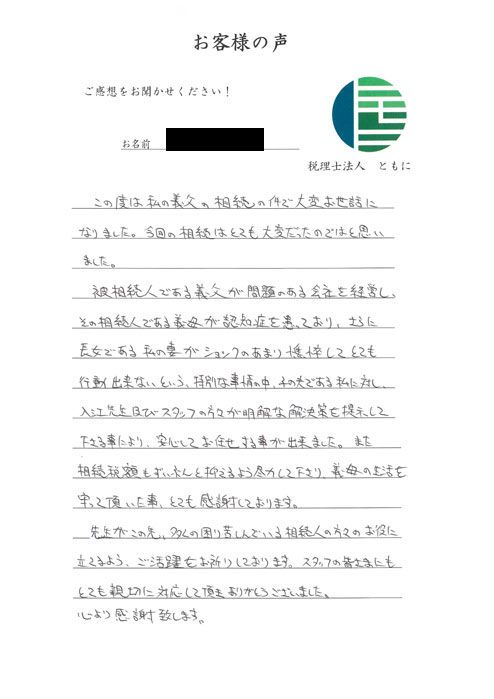 お客様の声
ご感想をお聞かせください！
お名前
税理士法人 ともに
この度は私の義父の相続の件で大変お世話に
なりました。今回の相続はとても大変だったのではと思い
ました。
被相続人である義父が問題のある会社を経営し、
その相続人である義母が認知症を患っており、さらに
長女である私の妻がショックのあまり憔悴してとても
行動出来ないという、特別な事情の中、その夫である私に対し、
入江先生及びスタッフの方々が明解な解決策を提示して
下さる事により、安心してお任せする事が出来ました。また
相続税額もずいぶんと抑えるよう尽力して下さり、義母の生活を
守って頂いた事、とても感謝しております。
先生がこの先、多くの困り苦しんでいる相続人の方々のお役に
立てるよう、ご活躍をお祈りしております。スタッフの皆さまにも
とても親切に対応して頂きありがとうございました。
心より感謝致します。